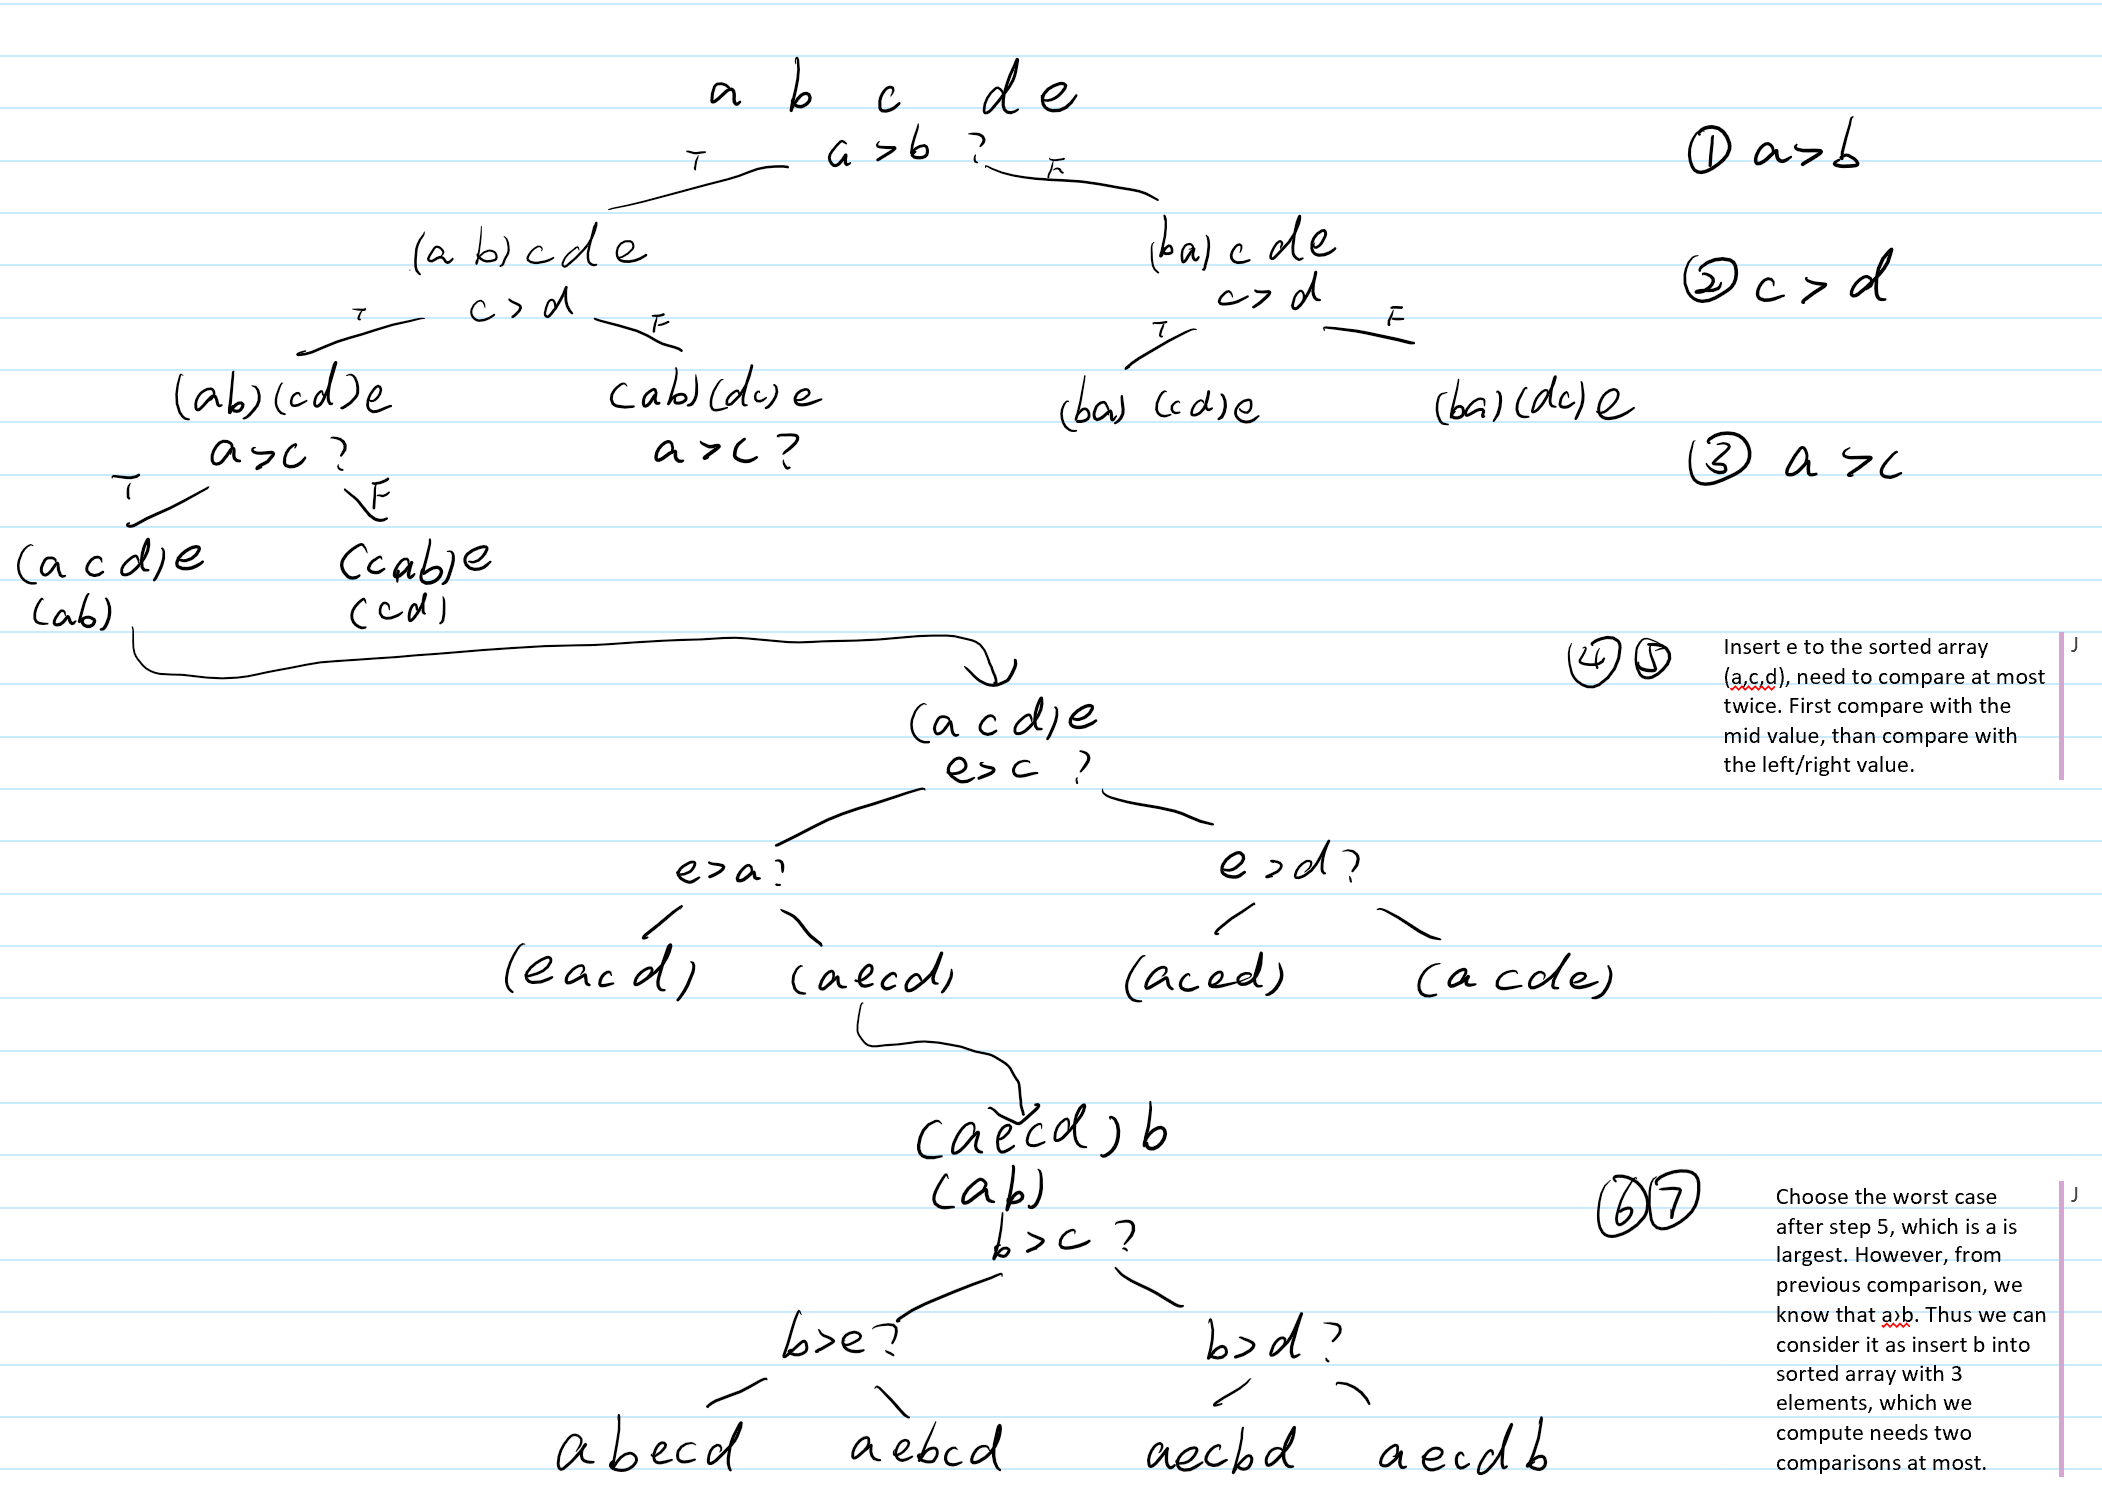 a b c d e
a > b ?
① a > b
T F
(a b) c d e
(ba) c d e
c > d
c > d
② c > d
T F
T F
(ab) (cd) e
(ab) (dc) e
(ba) (cd) e
(ba) (dc) e
a > c ?
a > c ?
③ a > c
T F
(a c d) e
(cab) e
(ab)
(cd)
④ ⑤
Insert e to the sorted array
(a,c,d), need to compare at most
twice. First compare with the
mid value, than compare with
the left/right value.
J
(a c d) e
e > c ?
e > a ?
e > d ?
(e a c d)
(aecd)
(aced)
(a cde)
(aecd) b
(ab)
b > c ?
⑥ ⑦
Choose the worst case
after step 5, which is a is
largest. However, from
previous comparison, we
know that a>b. Thus we can
consider it as insert b into
sorted array with 3
elements, which we
compute needs two
comparisons at most.
J
b > e ?
b > d ?
a b e c d
a e b c d
a e c b d
a e c d b